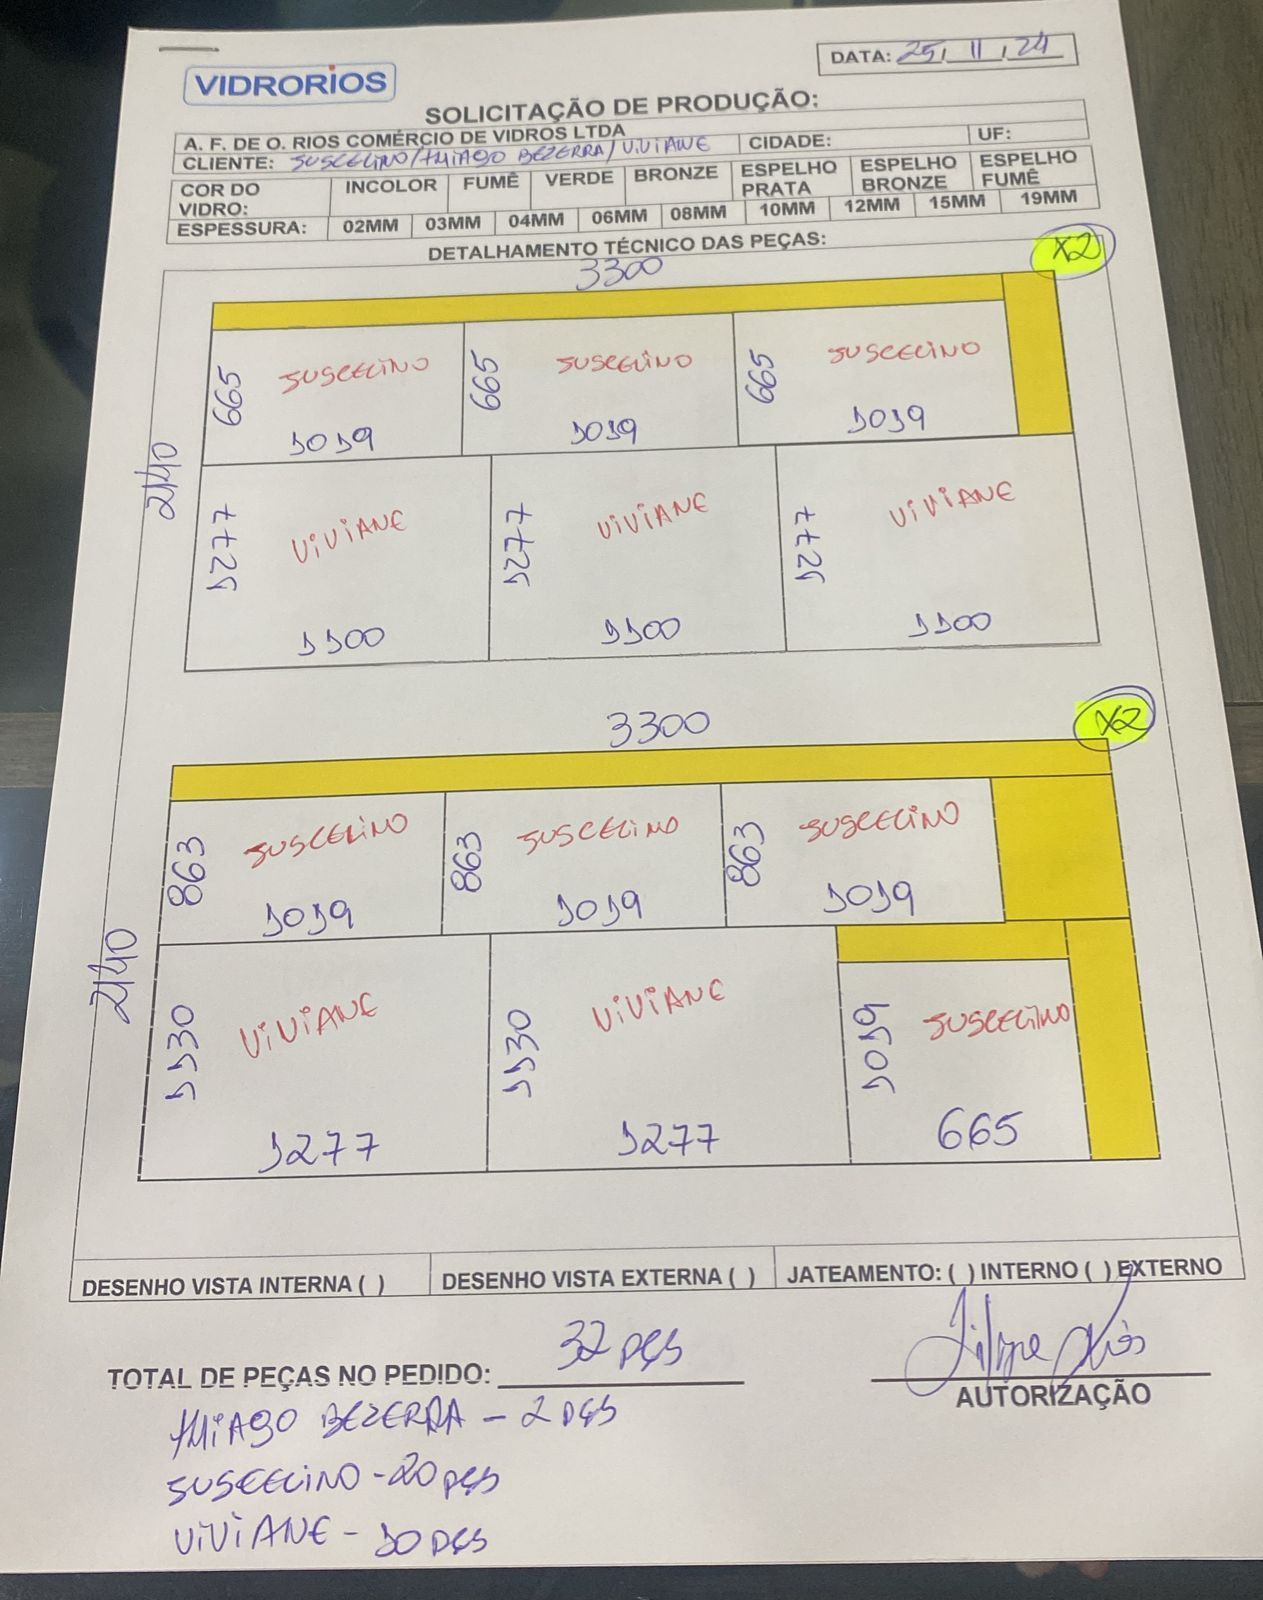 VIDRORIOS
DATA: 25/11/24
SOLICITAÇÃO DE PRODUÇÃO:
A. F. DE O. RIOS COMÉRCIO DE VIDROS LTDA
CLIENTE: JUSCELINO/THIAGO BEZERRA/VIVIANE
CIDADE:
UF:
COR DO VIDRO: INCOLOR FUMÊ VERDE BRONZE ESPELHO PRATA ESPELHO BRONZE ESPELHO FUMÊ
ESPESSURA: 02MM 03MM 04MM 06MM 08MM 10MM 12MM 15MM 19MM
DETALHAMENTO TÉCNICO DAS PEÇAS:
3300
X2
2140
665 JUSCELINO 665 JUSCELINO 665 JUSCELINO
1019 1019 1019
1277 VIVIANE 1277 VIVIANE 1277 VIVIANE
1100 1100 1100
3300
X2
2140
863 JUSCELINO 863 JUSCELINO 863 JUSCELINO
1019 1019 1019
1130 VIVIANE 1130 VIVIANE 1019 JUSCELINO
1277 1277 665
DESENHO VISTA INTERNA ( ) DESENHO VISTA EXTERNA ( ) JATEAMENTO: ( ) INTERNO ( ) EXTERNO
TOTAL DE PEÇAS NO PEDIDO: 32 PÇS
Filipe Rios
AUTORIZAÇÃO
THIAGO BEZERRA - 2 PÇS
JUSCELINO - 20 PÇS
VIVIANE - 10 PÇS